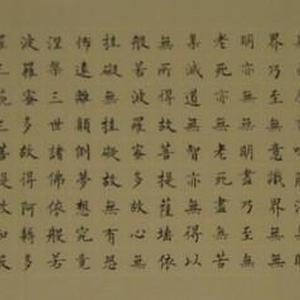 界乃至無意識界無無
明亦無無明盡乃至無
老死亦無老死盡無苦
集滅道無智亦無得以
無所得故菩提薩埵依
般若波羅蜜多故心無
挂礙無挂礙故無有恐
怖遠離顛倒夢想究竟
涅槃三世諸佛依般若
波羅蜜多故得阿耨多